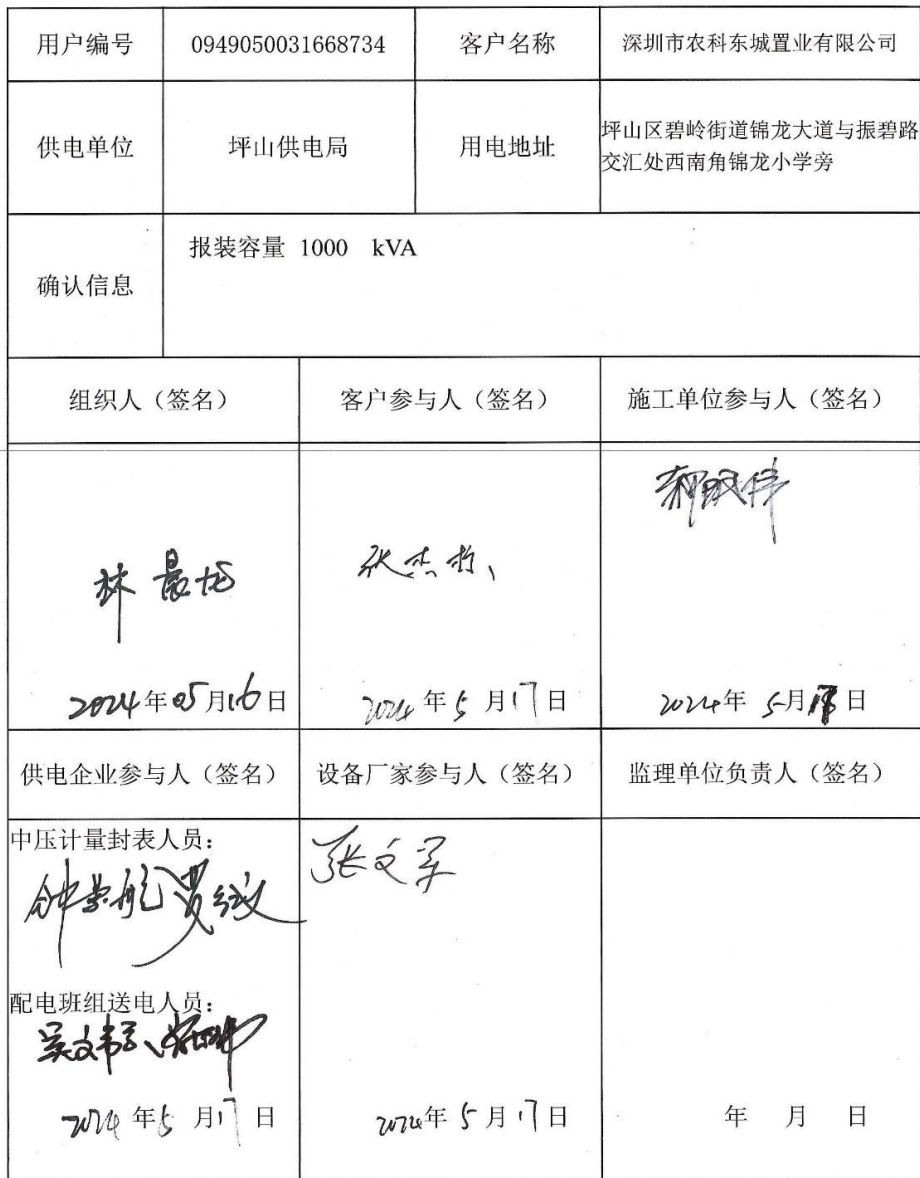 用户编号
0949050031668734
客户名称
深圳市农科东城置业有限公司
供电单位
坪山供电局
用电地址
坪山区碧岭街道锦龙大道与振碧路
交汇处西南角锦龙小学旁
确认信息
报装容量 1000 kVA
组织人（签名）
客户参与人（签名）
施工单位参与人（签名）
林晨龙
张杰哲
2024年05月16日
2024年5月17日
2024年 5月 日
供电企业参与人（签名）
设备厂家参与人（签名）
监理单位负责人（签名）
中压计量封表人员：
张文军
配电班组送电人员：
2024年5月17日
2024年5月17日
年 月 日